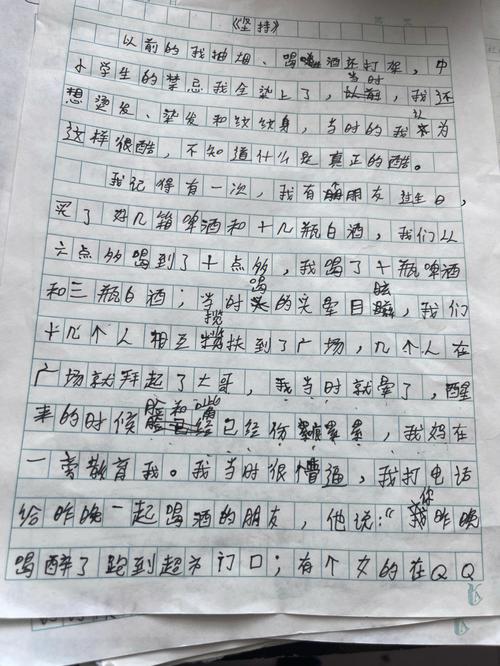 《坚持》
以前的我抽烟、喝酒还打架，中
小学生的禁忌我全染上了，当时我还
想烫发、染发和纹纹身，当时的我认为
这样很酷，不知道什么是真正的酷。
我记得有一次，我有个朋友过生日，
买了好几箱啤酒和十几瓶白酒，我们从
六点多喝到了十点多，我喝了十瓶啤酒
和三瓶白酒；当时喝的头晕目眩，我们
十几个人相互搀扶到了广场，几个人在
广场就拜起了大哥，我当时就晕了，醒
来的时候脸和嘴已经份累累，我妈在
一旁教育我。我当时很懵逼，我打电话
给昨晚一起喝酒的朋友，他说："你昨晚
喝醉了跑到超市门口；有个女的在QQ